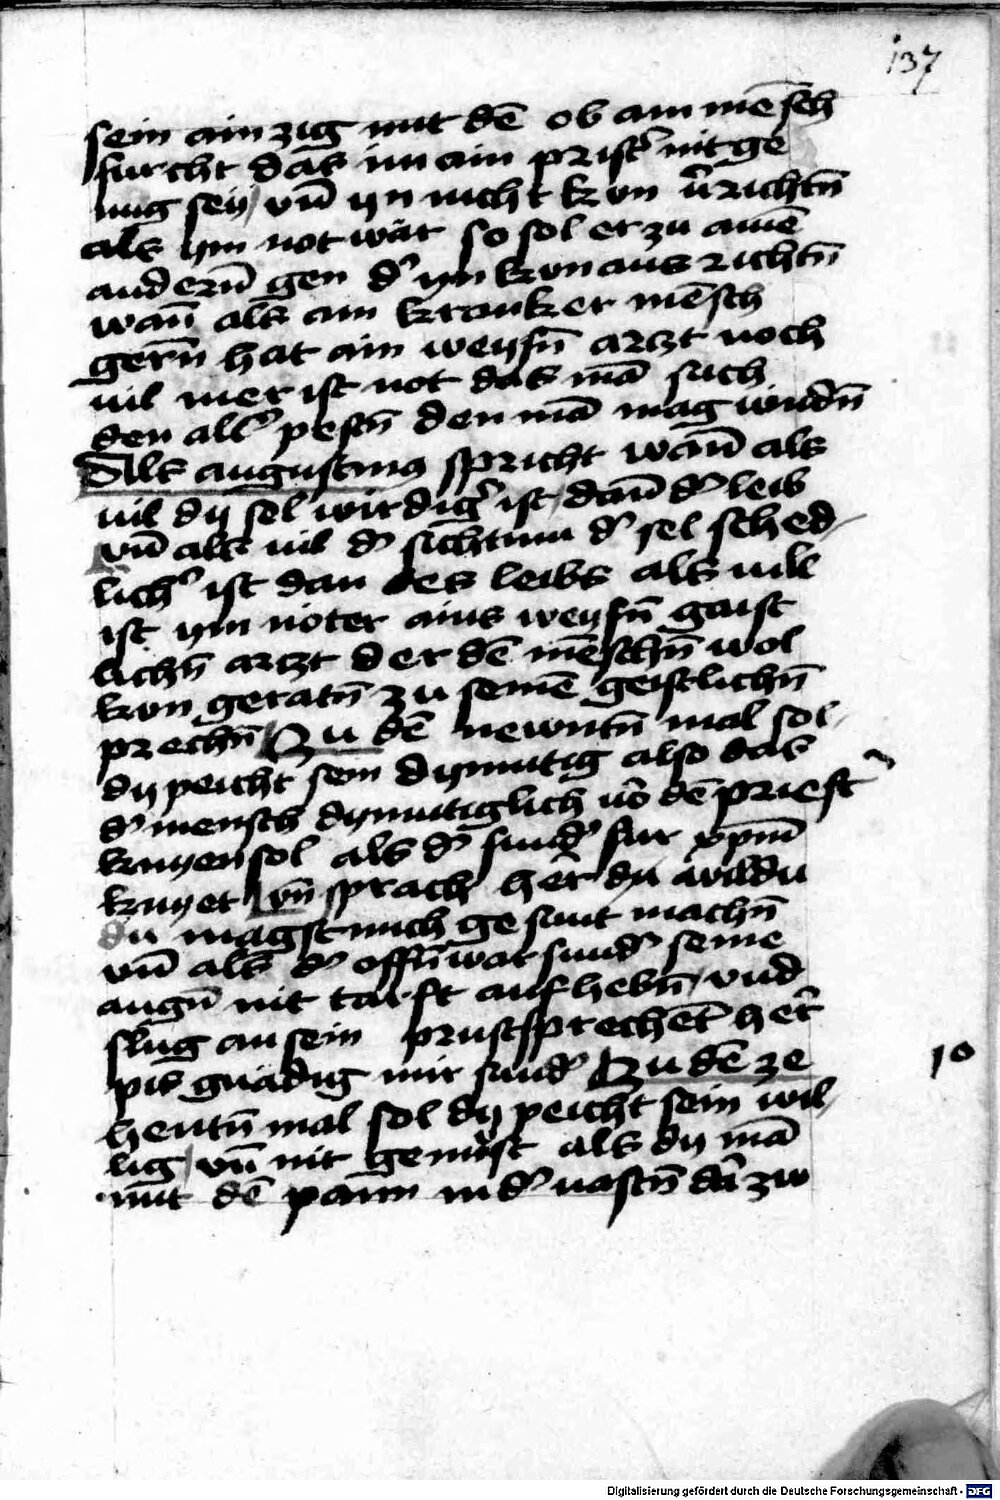 137
sein ainzig mit dē ob ain mēsch
furcht das im ain pristʾ nit ge
nug seÿ / vn̄ yn nicht kon v̄richtn̄
als ym not wär so sol er zu ainē
andern̄ gen dʾ yn kon aus richtn̄
wan̄ als ain kranker mēsch
gern̄ hat ain weysn̄ arczt noch
vil mer ist not das mā such
den allʾ pestn̄ den mā mag vindn̄
Als augustinus spricht wan̄ als
vil dy sel wirdigʾ ist / dan̄ dʾ leib
vn̄ als vil dʾ sichtum dʾ sel sched-
lichʾ ist dan des leibs als vill
ist ym nöter ains weysn̄ gaist
lichn̄ arczt der dē mēschn̄ wol
kon geratn̄ zu seinē geistlichn̄
prechn̄ Zu dē newntn̄ mal sol-
dy peicht sein dymutig also das
dʾ mensch dymutiglich vō dē priestʾ
knyen sol als dʾ sundʾ fur xpm̄
knyet vn̄ sprach her dy wildu
du magst mich gesunt machn̄
vn̄ als dʾ offn̄war sundʾ seine
augn̄ nit tarst auf hebn̄ / vnd
slug an sein prust sprechet her
pis gnädig mir sundʾ Zu dē ze
hentn̄ mal sol dy peicht sein wil-
lig / vn̄ nit genöst als dy mā
mit dē pann in dʾ vastn̄ dar zw
10
Digitalisierung gefördert durch die Deutsche Forschungsgemeinschaft - DFG